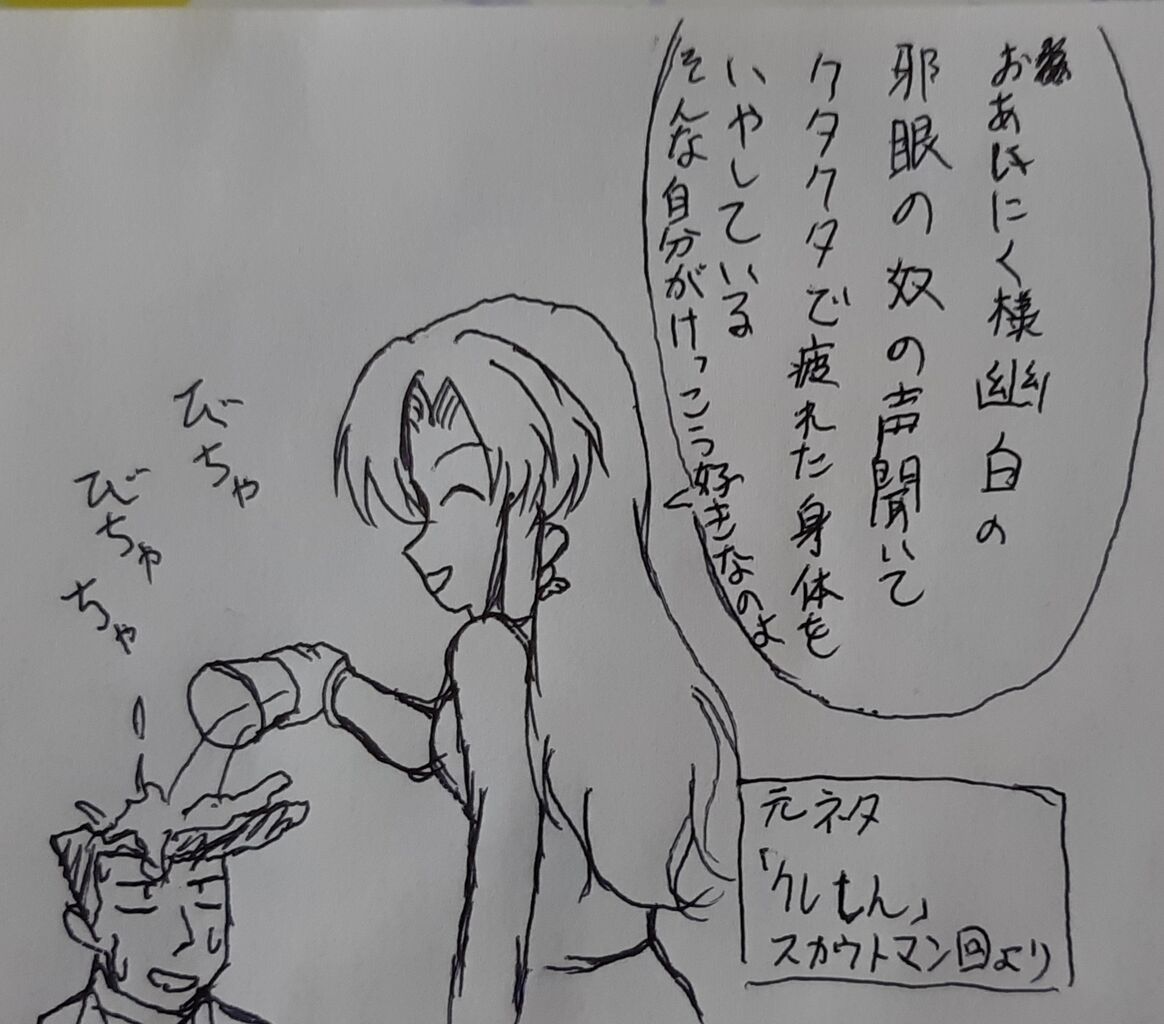 おあにく様幽白の
邪眼の奴の声聞いて
クタクタで疲れた身体を
いやしている
そんな自分がけっこう好きなのよ
びちゃ
びちゃ
ちゃ
元ネタ
「クレしん」
スカウトマン回より